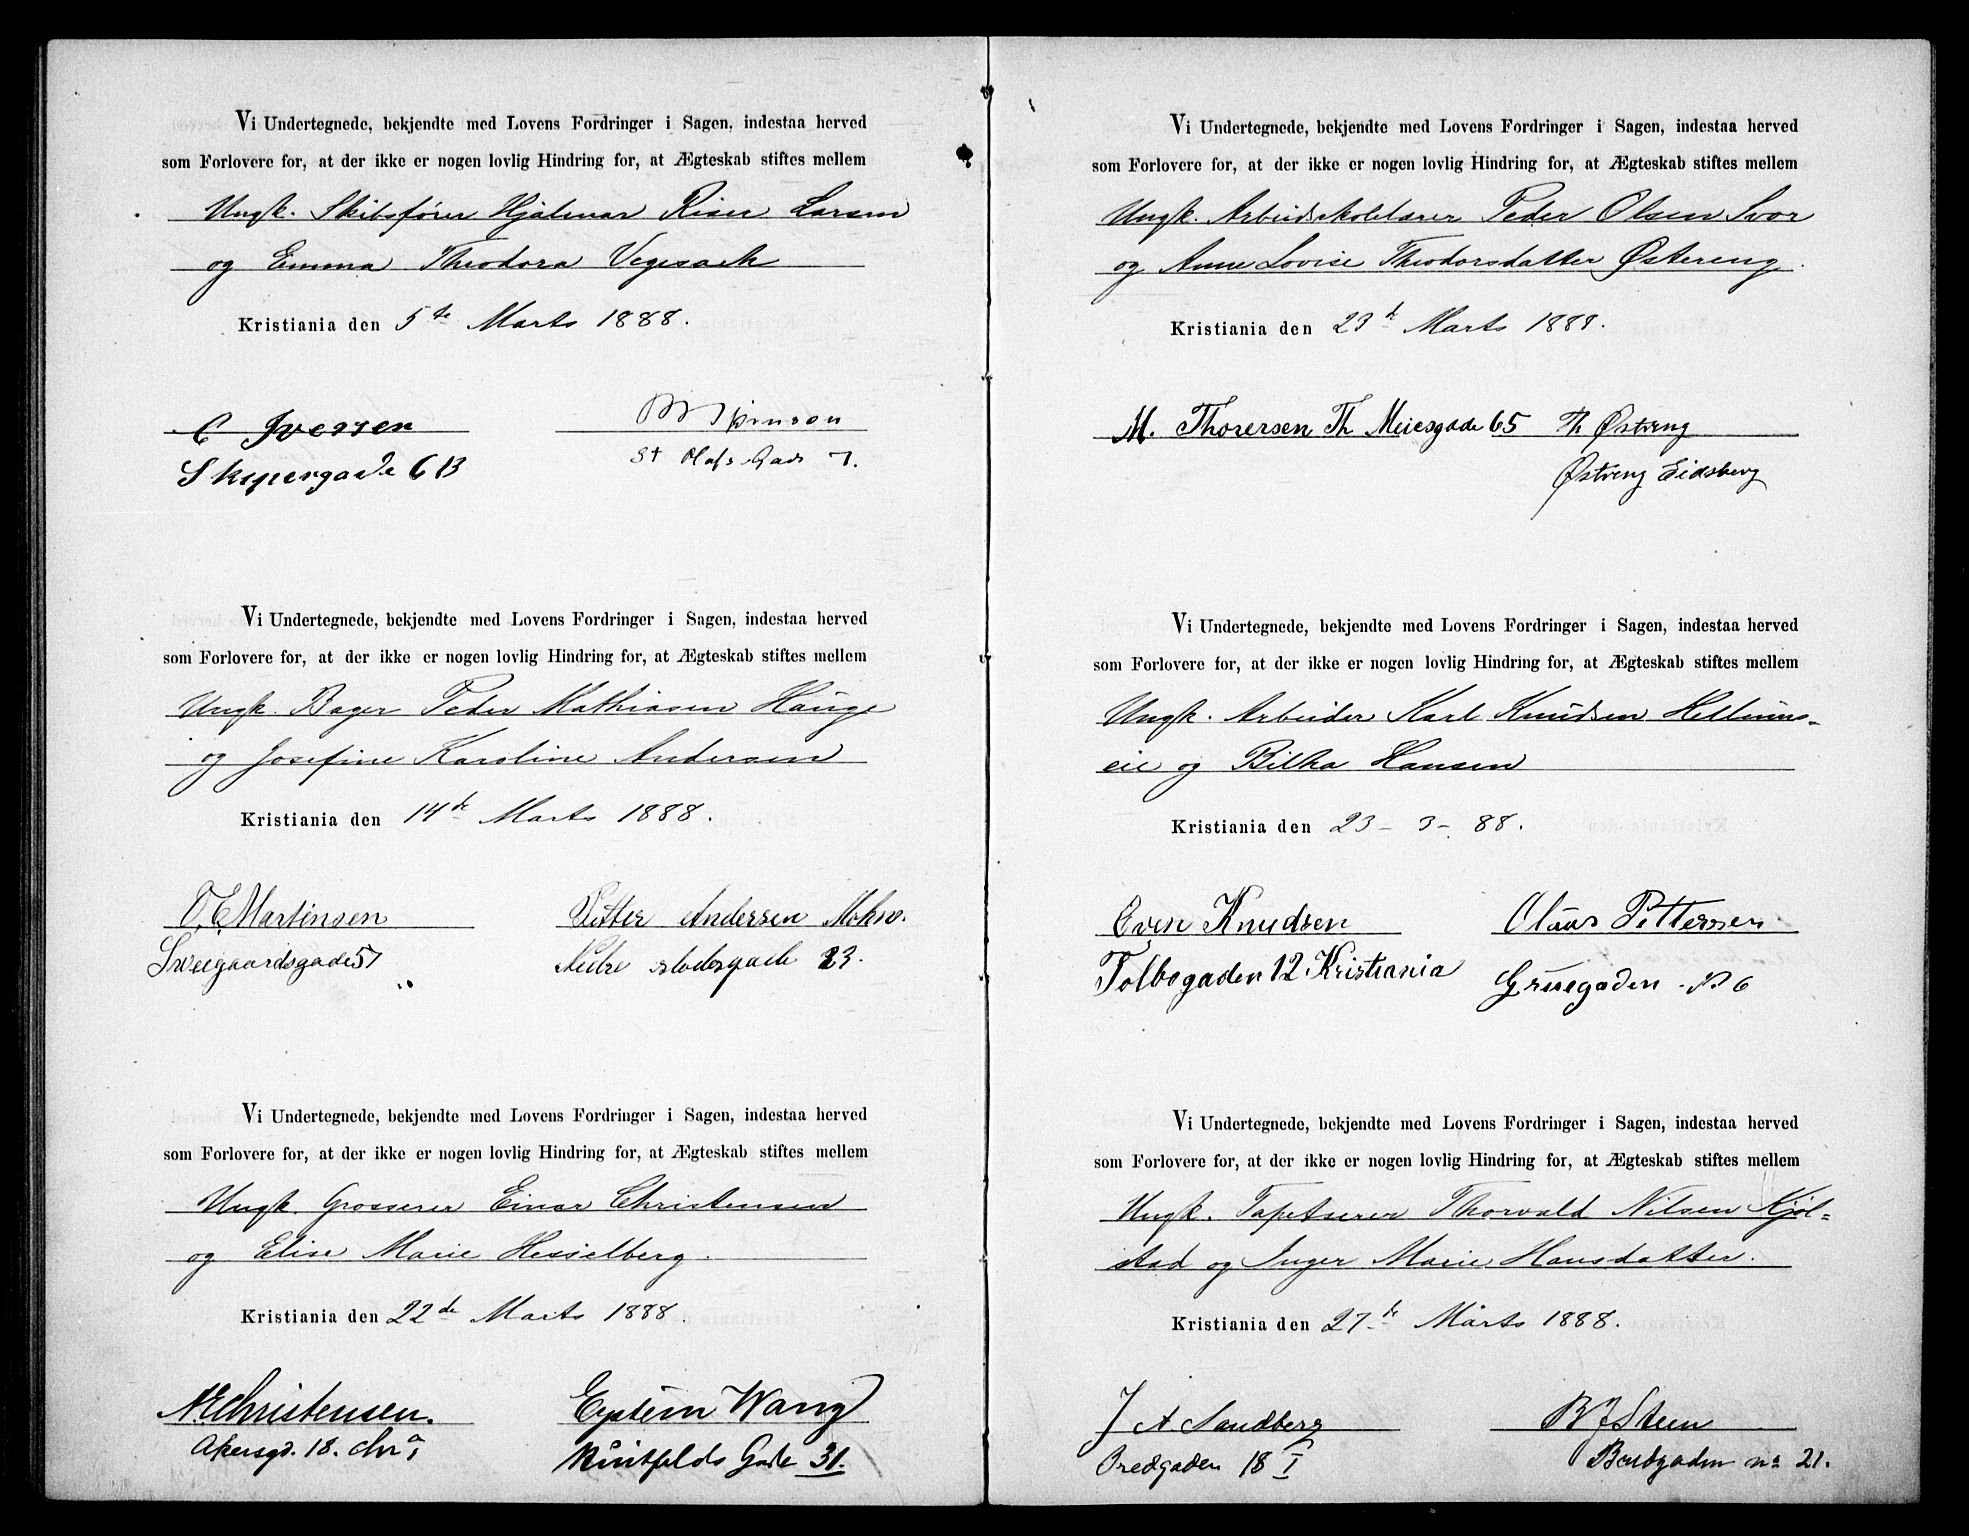 Vi Undertegnede, bekjendte med Lovens Fordringer i Sagen, indestaa herved
som Forlovere for, at der ikke er nogen lovlig Hindring for, at Ægteskab stiftes mellem
Ungk. Skibsfører Hjalmar Riser Larsen
og Emma Theodora Vegesack
Kristiania den 5te Marts 1888.
C Iversen
Skipergade 6B
St Olafs Gade 7.
Vi Undertegnede, bekjendte med Lovens Fordringer i Sagen, indestaa herved
som Forlovere for, at der ikke er nogen lovlig Hindring for, at Ægteskab stiftes mellem
Ungk. Bager Peder Mathiasen Hauge
og Josefine Karoline Andersen
Kristiania den 14de Marts 1888.
Martinsen Petter Andersen
Sweegaardsgade 51 Nedre 23.
Vi Undertegnede, bekjendte med Lovens Fordringer i Sagen, indestaa herved
som Forlovere for, at der ikke er nogen lovlig Hindring for, at Ægteskab stiftes mellem
Ungk. Grosserer Einar Christensen
og Elise Marie Hesselberg.
Kristiania den 22de Marts 1888.
N. Christensen. Eystein Wang
Akersgd. 18. Chra, Gade 31.
Vi Undertegnede, bekjendte med Lovens Fordringer i Sagen, indestaa herved
som Forlovere for, at der ikke er nogen lovlig Hindring for, at Ægteskab stiftes mellem
Ungk. Arbeidskolelærer Peder Olsen Svor
og Anne Lovise Theodorsdatter Østereng.
Kristiania den 23de Marts 1888.
M. Thorersen Th Meiesgade 65 Th Østreng
Østreng Eidsberg
Vi Undertegnede, bekjendte med Lovens Fordringer i Sagen, indestaa herved
som Forlovere for, at der ikke er nogen lovlig Hindring for, at Ægteskab stiftes mellem
Ungk. Arbeider Karl Knudsen
eie og Bilha Hansen
Kristiania den 23-3-88.
Even Knudsen Olaus Pettersen
Tolbogaden 12 Kristiania Gruegaden № 6
Vi Undertegnede, bekjendte med Lovens Fordringer i Sagen, indestaa herved
som Forlovere for, at der ikke er nogen lovlig Hindring for, at Ægteskab stiftes mellem
Ungk. Tapetserer Thorvald Nilsen Kjøl=
stad og Inger Marie Hansdatter.
Kristiania den 27de Marts 1888.
J A. Sandberg B J Steen
Bredgaden 18 I no 21.